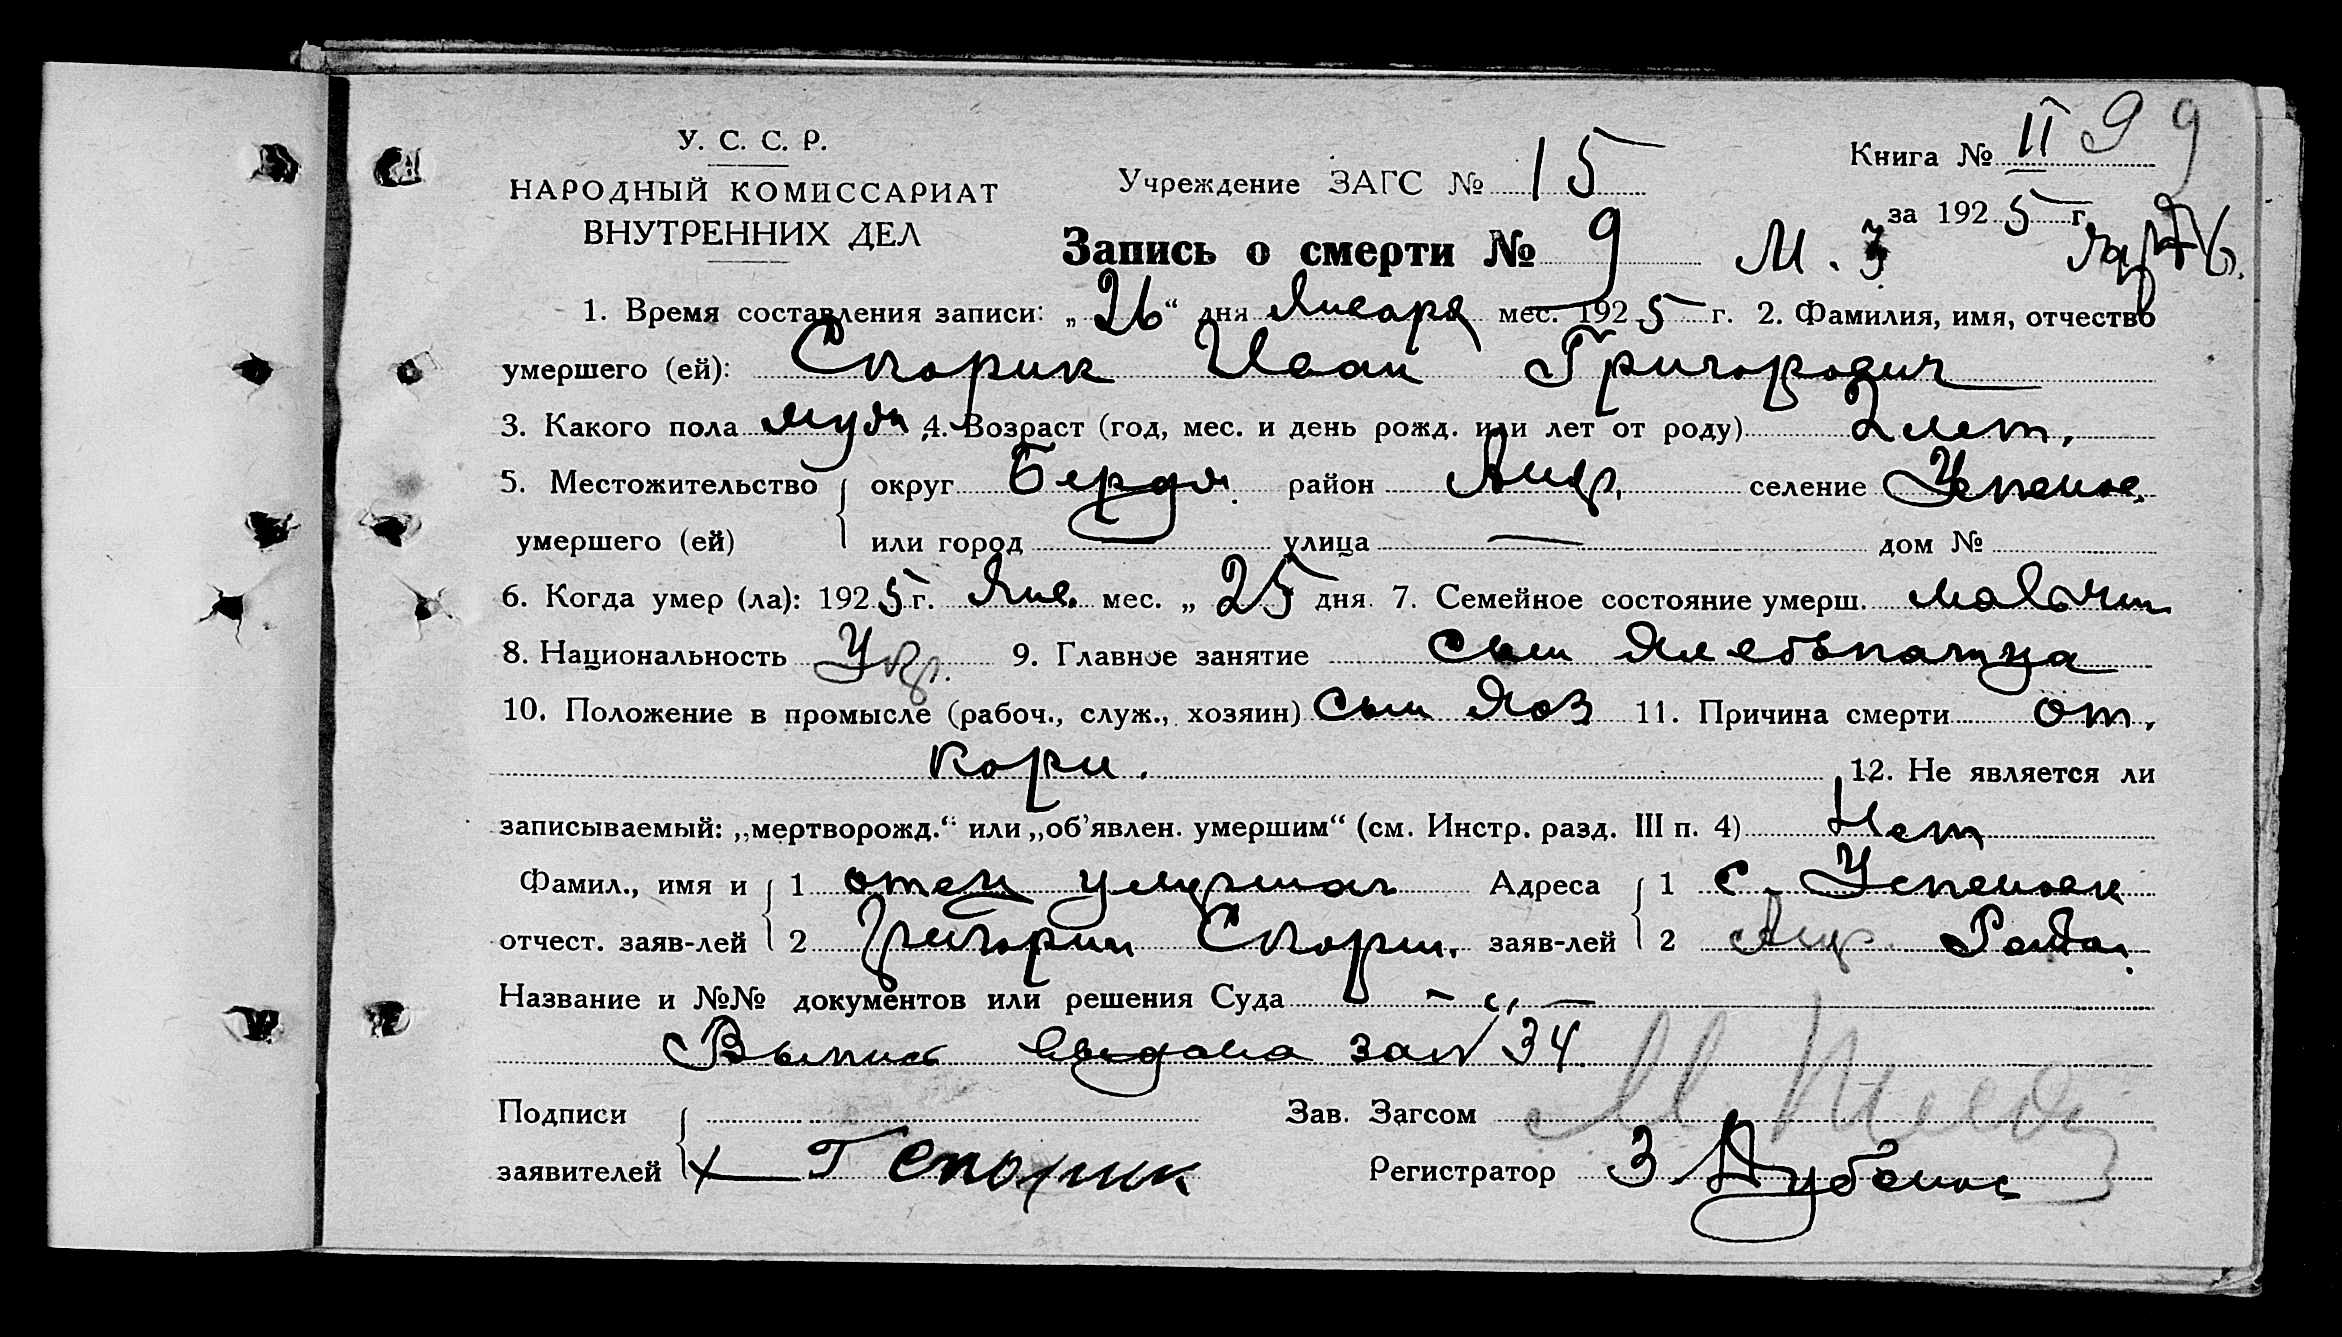 У. С. С. Р.
НАРОДНЫЙ КОМИССАРИАТ
ВНУТРЕННИХ ДЕЛ
Учреждение ЗАГС № 15
Книга № II 9 9
за 1925 г.
Запись о смерти № 9 М. 3
1. Время составления записи: „26“ дня Января мес. 1925 г. 2. Фамилия, имя, отчество
умершего (ей): Спорик Иван Григорович
3. Какого пола муж 4. Возраст (год, мес. и день рожд. или лет от роду) 2 лет.
5. Местожительство округ Бердя. район селение Успеное
умершего (ей) или город — улица — дом №
6. Когда умер (ла): 1925 г. Янв. мес. „25 дня. 7. Семейное состояние умерш.
8. Национальность Укр. 9. Главное занятие сын Хлебопашца
10. Положение в промысле (рабоч., служ., хозяин) сын Хоз 11. Причина смерти от.
кори. 12. Не является ли
записываемый: „мертворожд.“ или „об’явлен. умершим“ (см. Инстр. разд. III п. 4) Нет
Фамил., имя и 1 отец Адреса 1 с. Успеновки
отчест. заяв-лей 2 Григории Спорик. заяв-лей 2
Название и №№ документов или решения Суда —
Выпись выдана за № 34
Подписи Зав. Загсом
заявителей Г Спорик Регистратор З